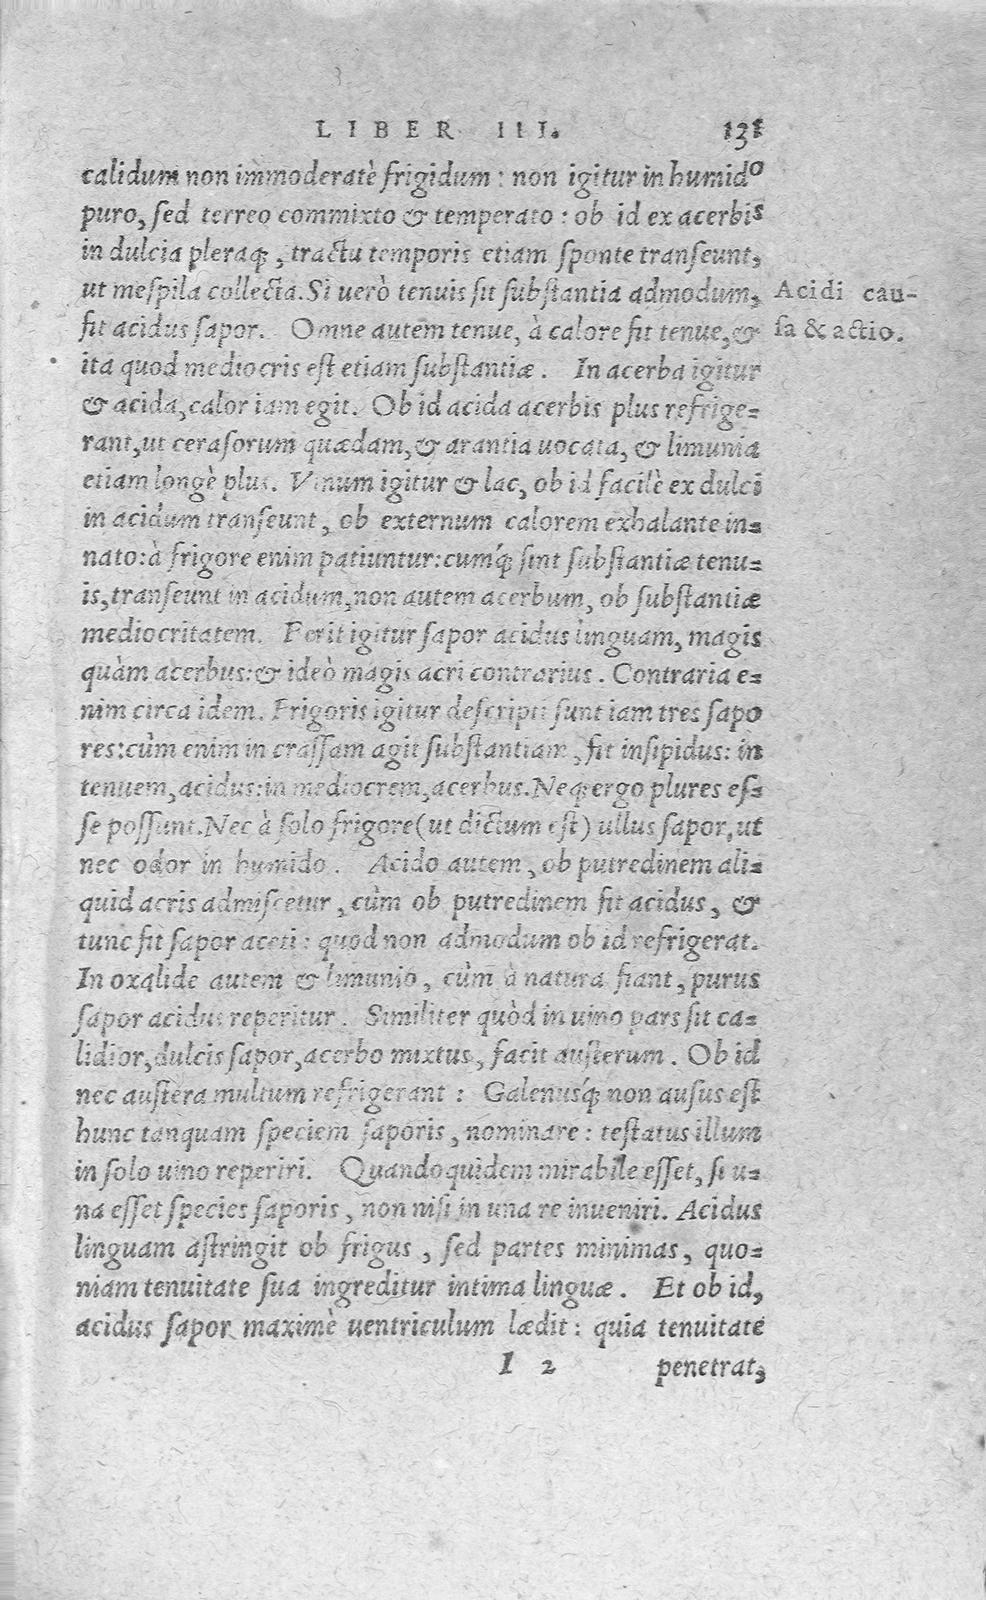 LIBER III. 131
calidum non immoderatè frigidum: non igitur in humido
puro, sed terreo commixto & temperato: ob id ex acerbis
in dulcia pleraq́;, tractu temporis etiam sponte transeunt,
ut mespila collecta. Si uerò tenuis sit substantia admodum,
Acidi cau-
fit acidus sapor. Omne autem tenue, à calore fit tenue, &
sa & actio.
ita quod mediocris est etiam substantiæ. In acerba igitur
& acida, calor iam egit. Ob id acida acerbis plus refrige=
rant, ut cerasorum quædam, & arantia uocata, & limunia
etiam longè plus. Vinum igitur & lac, ob id facilè ex dulci
in acidum transeunt, ob externum calorem exhalante in=
nato: à frigore enim patiuntur: cumq́; sint substantiæ tenu=
is, transeunt in acidum, non autem acerbum, ob substantiæ
mediocritatem. Ferit igitur sapor acidus linguam, magis
quàm acerbus: & ideò magis acri contrarius. Contraria e=
nim circa idem. Frigoris igitur descripti sunt iam tres sapo
res: cùm enim in crassam agit substantiam, fit insipidus: in
tenuem, acidus: in mediocrem, acerbus. Neq; ergo plures es=
se possunt. Nec à solo frigore (ut dictum est) ullus sapor, ut
nec odor in humido. Acido autem, ob putredinem ali=
quid acris admiscetur, cùm ob putredinem fit acidus, &
tunc fit sapor aceti: quod non admodum ob id refrigerat.
In oxalide autem & limunio, cùm à natura fiant, purus
sapor acidus reperitur. Similiter quòd in uino pars sit ca=
lidior, dulcis sapor, acerbo mixtus, facit austerum. Ob id
nec austera multum refrigerant: Galenusq́; non ausus est
hunc tanquam speciem saporis, nominare: testatus illum
in solo uino reperiri. Quandoquidem mirabile esset, si u=
na esset species saporis, non nisi in una re inueniri. Acidus
linguam astringit ob frigus, sed partes minimas, quo=
niam tenuitate sua ingreditur intima linguæ. Et ob id,
acidus sapor maximè uentriculum lædit: quia tenuitate
I 2 penetrat,